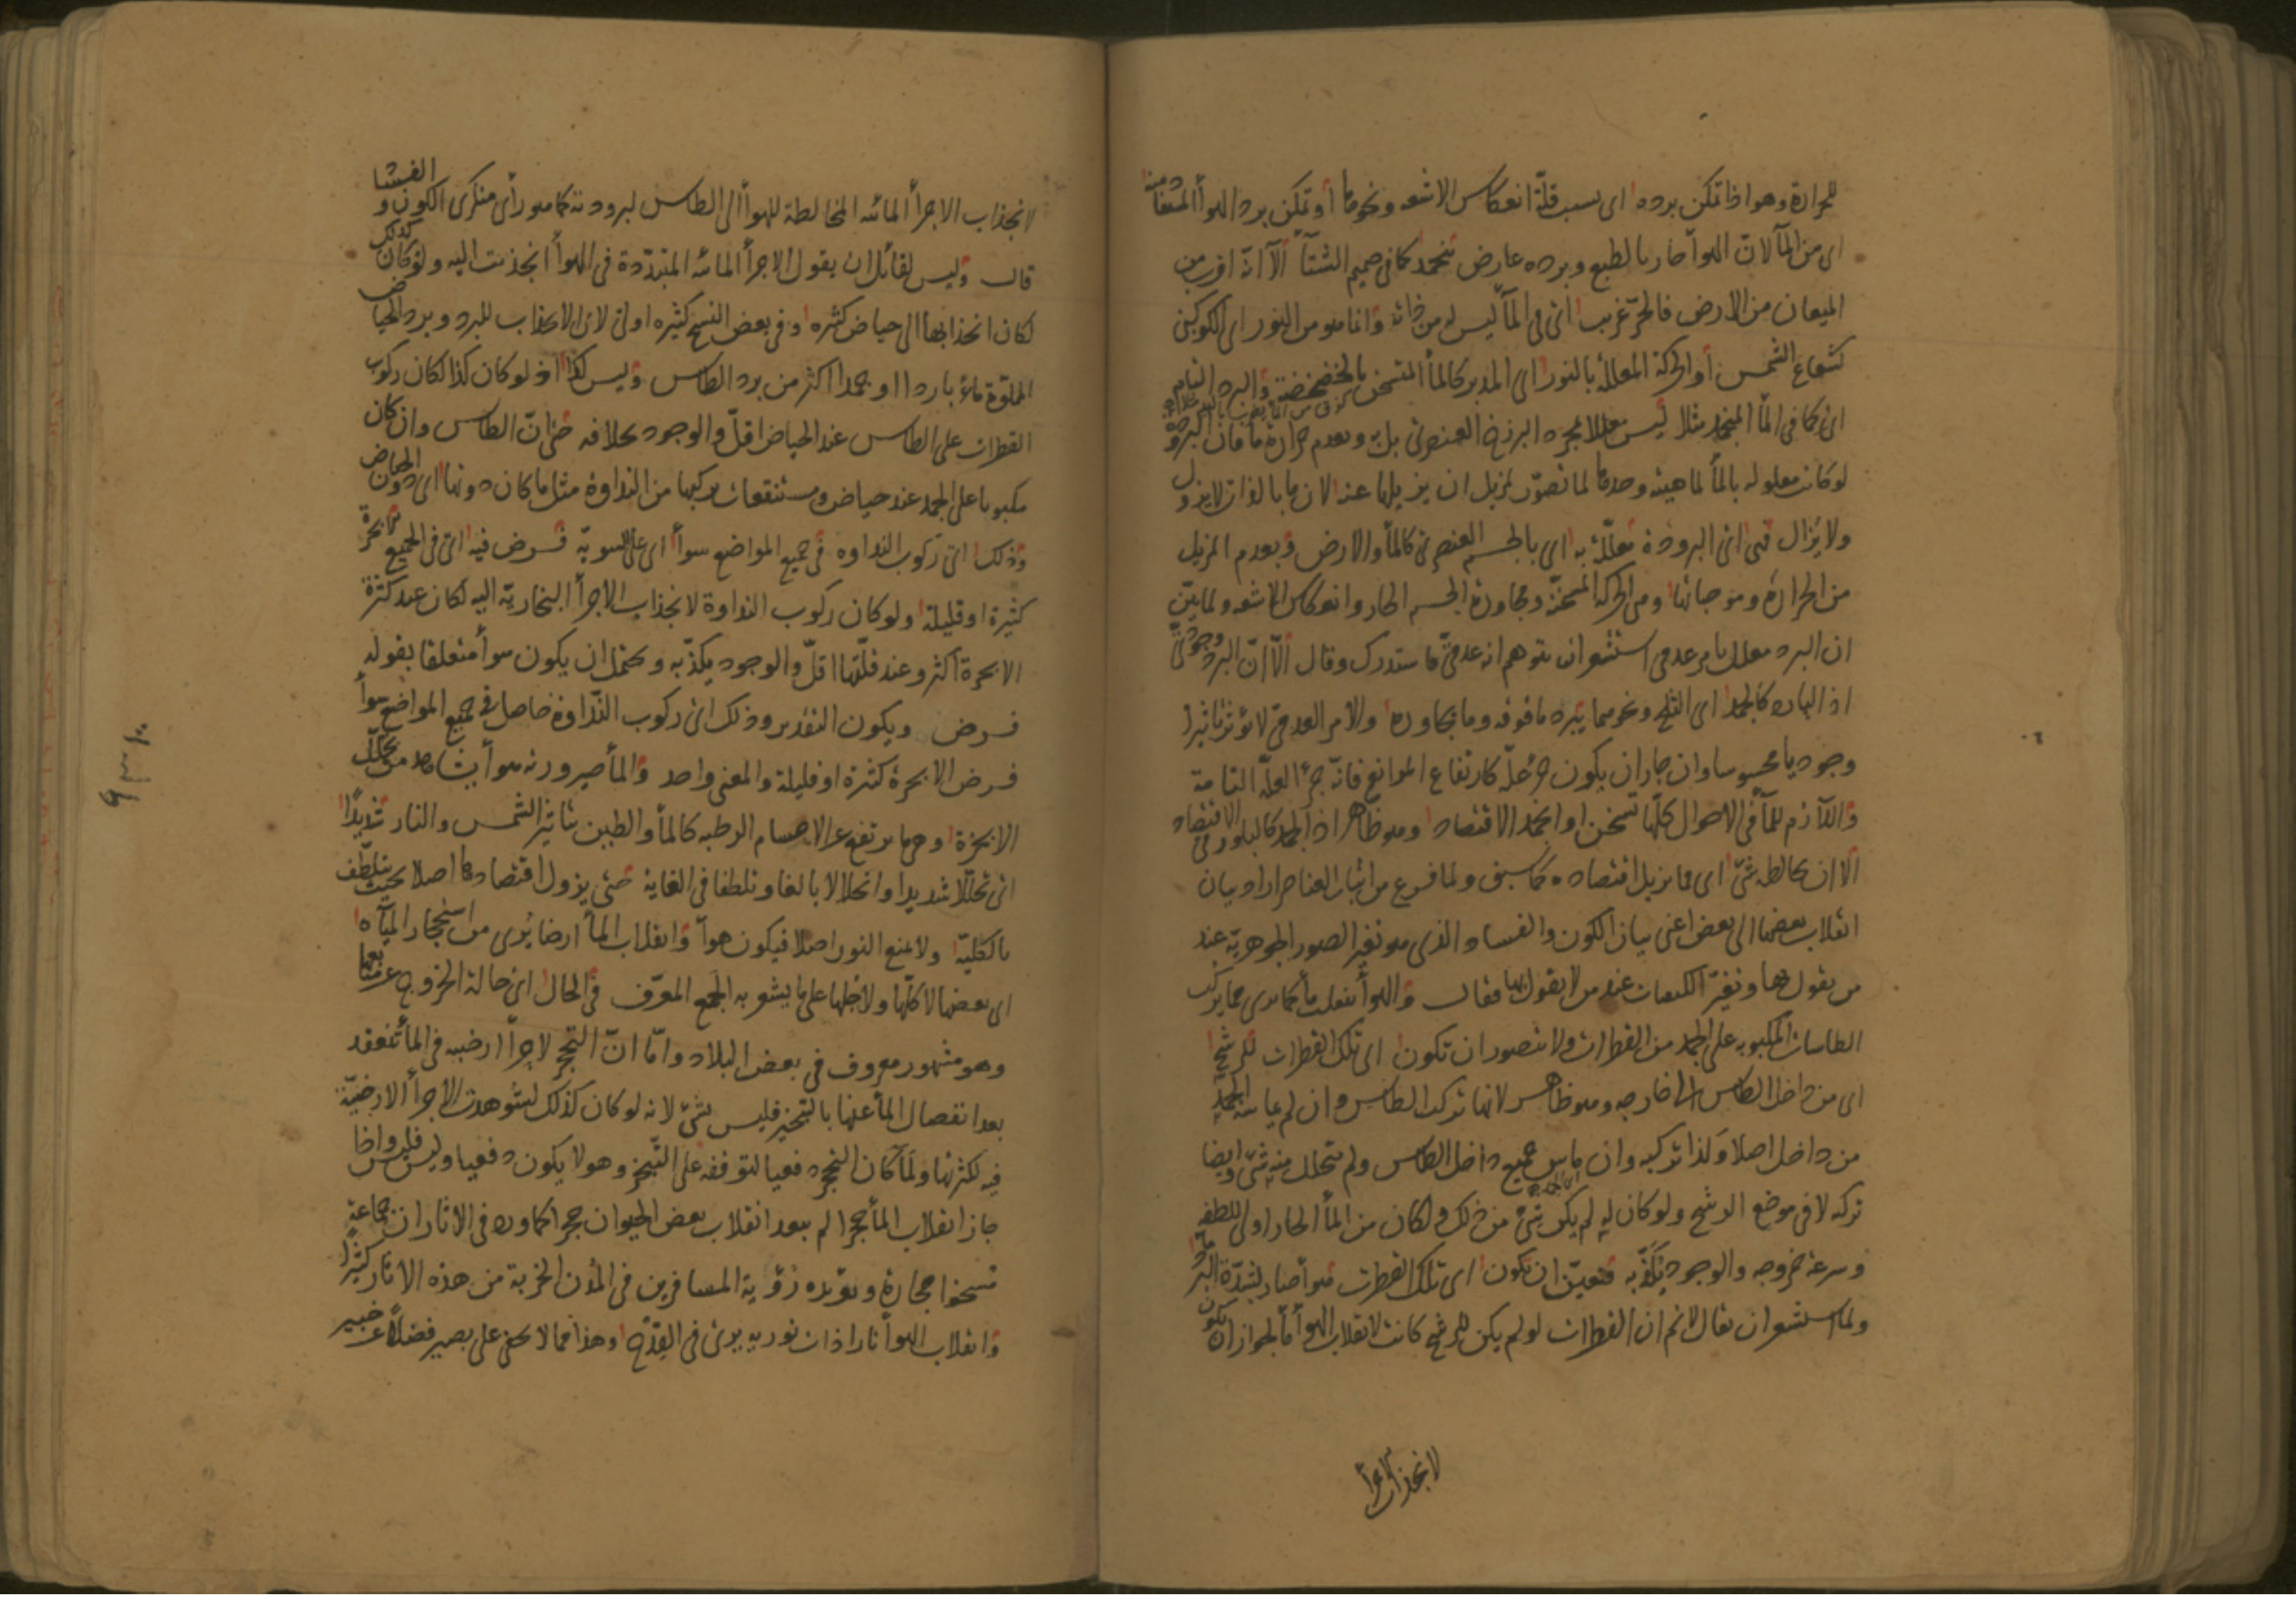 للحرارة وهو اذا تمكن برده اى بسبب قلّة انعكاس الاشعه ونحوها أو تمكن برد الهوأ المستفاد منه
اى من المآ لانّ الهوآ حار بالطبع وبرده عارض يتجمد كما فى صميم الشتآ الّا انّه اقرب من
الميعان من الارض فالحرّ غريب اى فى المآ ليس له من ذاته وانما هو من النور اى الكوكبى
كشعاع الشمس أو الحركة المعللة بالنور اى المدبر كالمأ المتسخن بالخضخضة والبرد التام
اى كما فى المآ المنجمد مثلا ليس معللا بمجرد البرزخ العنصرى بل به وبعدم حرارة ما فان البرودة
لو كانت معلوله بالمأ لماهيته وحدها لما تصوّر لمزيل ان يزيلها عنه لان ما بالذات لا يزول
ولا يُزال فهى اى البرودة معلّلة به اى بالجسم العنصرى كالمأ والارض وبعدم المزيل
من الحرارة وموجباتها وهى الحركة المسخنّة ومجاورة الجسم الحار وانعكاس الاشعه ولما بيّن
ان البرد معلل بامر عدمى استشعر ان يتوهم انه عدمىّ فاستدرك وقال الّا انّ البرد وجودىّ
اذ البارد كالجمد اى الثلج ونحوهما يبرد ما فوقه وما يجاوره والامر العدمىّ لا يؤثر تاثيرا
وجوديا محسوسا وان جاز ان يكون جزء علّه كارتفاع الموانع فانّه جزء العلّه التامة
واللّازم للمآ فى الاحوال كلّها تسخن او انجمد الاقتصاد وهو ظاهر اذ الجمد كالبلور فى الاقتصاد
الا ان يخالطه شئ اى مما يزيل اقتصاده كما سبق ولما فرغ من اثبات العناصر اراد بيان
انقلاب بعضها الى بعض اعنى بيان الكون والفساد الذى هو تغير الصور الجوهريّة عند
من يقول بها وتغيّر الكيفيات عند من لا يقول بها فقال والهوأ ينقلب مأ كما ترى مما يركب
الطاسات المكبوبه على الجمد من القطرات ولا يتصور ان تكون اى تلك القطرات للرشح
اى من داخل الطاس الى خارجه وهو ظاهر لانها تركب الطاس وان لم يماسّه الجمد
من داخل اصلا وكذا تركبه وان ماس جميع داخل الطاس ولم يتحلل منه شئ وايضا
تركبه لا فى موضع الرشح ولو كان له لم يكن شئ من ذلك ولكان من المأ الحار اولى للطفه
وسرعة خروجه والوجود يكذّبه فتعيّن ان تكون اى تلك القطرات هوأ صار لشدّة البرد مأ
ولما استشعر ان يقال لا نم ان القطرات لو لم يكن للرشح كانت لانقلاب الهوأ مأ لجواز ان يكون
لانجذاب الاجزأ
لانجذاب الاجزأ المائيه المخالطة للهوأ الى الطاس لبرودته كما هو رأى منكرى الكون والفساد
قال وليس لقائل ان يقول الاجزأ المائيه المتبدّدة فى الهوأ انجذبت اليه ولو كان كذلك
لكان انجذابها الى حياض كثيره وفى بعض النسخ كبيره اولى لان الانجذاب للبرد وبرد الحياض
المملوّة ماء باردا او جمدا اكثر من برد الطاس وليس كذا اذ لو كان كذا لكان ركوب
القطرات على الطاس عند الحياض اقلّ والوجود بخلافه حتى انّ الطاس وان كان
مكبوبا على الجمد عند حياض ومستنقعات يركبها من النداوة مثل ما كان دونها اى دون الحياض
وذلك اى ركوب النداوه فى جميع المواضع سوأ اى على السويّة فرض فيه اى فى الجميع ابخرة
كثيرة او قليلة ولو كان ركوب النداوة لانجذاب الاجزأ البخاريّة اليه لكان عند كثرة
الابخرة اكثر وعند قلّتها اقلّ والوجود يكذّبه ويحتمل ان يكون سوأ متعلقا بقوله
فرض ويكون التقدير وذلك اى ركوب النّداوة حاصل فى جميع المواضع سوأ
فرض الابخرة كثيرة او قليلة والمعنى واحد والمأ صيرورته هوأ يشاهد من تحلّل
الابخرة وهى ما يرتفع عن الاجسام الرطبه كالمأ والطين بتاثير الشمس والنار شديدًا
اى تحلّلا شديدا وانحلالا بالغا وتلطفا فى الغاية حتى يزول اقتصادها اصلا بحيث يتلطّف
بالكليّة ولا يمنع النور اصلا فيكون هوآ وانقلاب المأ ارضا يُرى من استحجار المياه
اى بعضها لا كلّها ولا جلّها على ما يشعر به الجمع المعرّف فى الحال اى حالة الخروج عن منبعها
وهو مشهور معروف فى بعض البلاد وامّا انّ التحجر لاجزآ ارضيه فى المأ تنعقد
بعد انفصال المأ عنها بالتبخير فليس بشئ لانه لو كان كذلك لشوهدت الاجزأ الارضيّة
فيه لكثرتها ولمّا كان التحجر دفعيا لتوقفه على التّبخر وهو لا يكون دفعيا وليس فليس واذا
جاز انقلاب المأ حجرا لم يبعد انقلاب بعض الحيوان حجرا كما ورد فى الاثار ان جماعة
مسخوا حجارة ويؤيده رؤية المسافرين فى المدن الخربة من هذه الاثار كثيرًا
وانقلاب الهوأ نارا ذات نوريه يرى فى القدّح وهذا مما لا يخفى على بصير فضلًا عن خبير